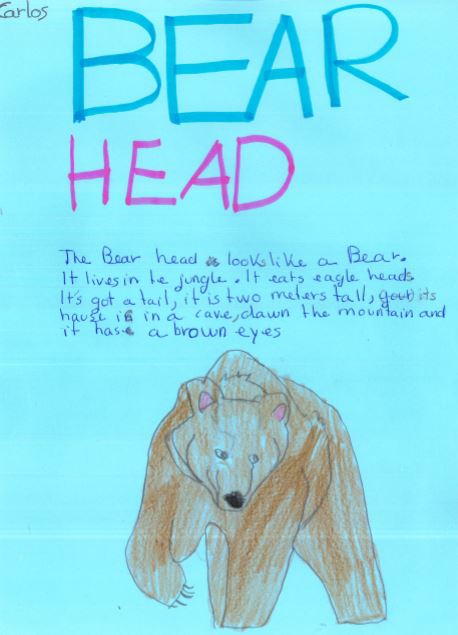 Carlos
BEAR
HEAD
The Bear head is looks like a Bear.
It lives in te jungle. It eats eagle heads.
It's got a tail, it is two meters tall, its
hause is in a cave, dawn the mountain and
it has a brown eyes